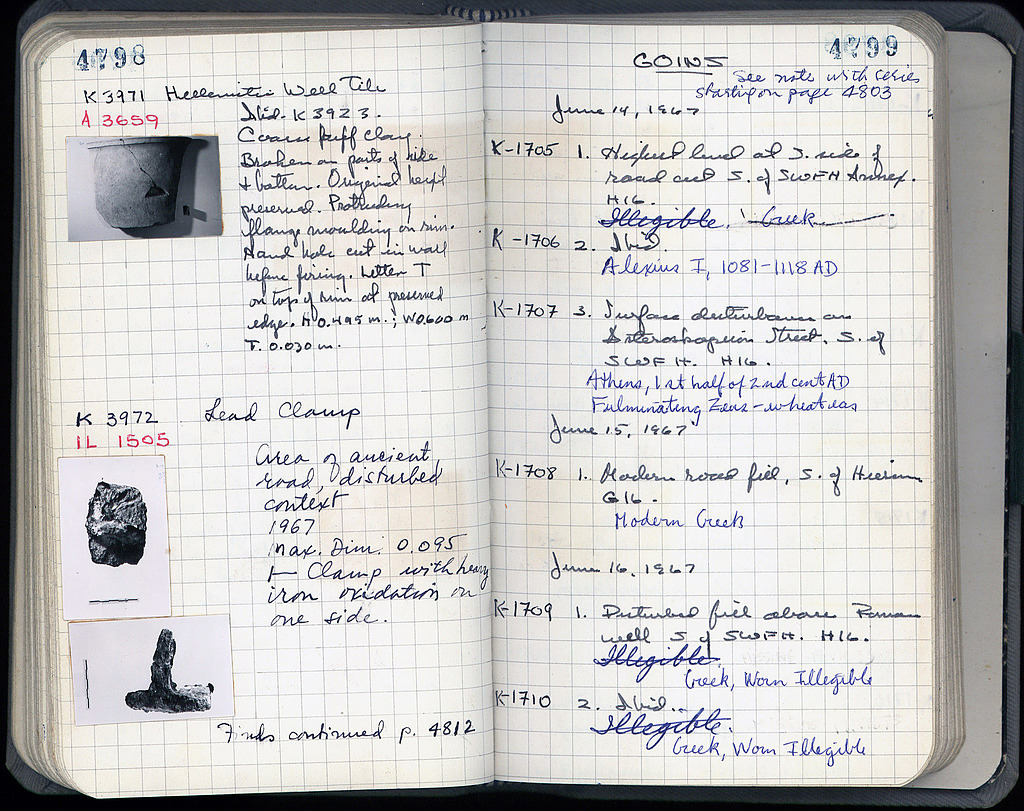 4798
K 3971 Hellenistic Well Tile
A 3659
Ibid. K 3923.
Coarse buff clay.
Broken on parts of side
+ bottom. Original height
preserved. Protruding
flange moulding on rim.
Hand hole cut in wall
before firing. Letter T
on top of rim at preserved
edge. H 0.495 m.; W 0.600 m
T. 0.030 m.
K 3972 Lead Clamp
IL 1505
Area of ancient
road, disturbed
context
1967
Max. Dim. 0.095
⊢ Clamp with heavy
iron oxidation on
one side.
Finds continued p. 4812
4799
COINS
See note with series
starting on page 4803
June 14, 1967
K-1705 1. Highest level at S. side of
road cut S. of SWFH Annex.
H16.
Illegible. Greek
K-1706 2. Ibid
Alexius I, 1081-1118 AD
K-1707 3. Surface disturbance on
Street. S. of
SWFH. H16.
Athens, 1st half of 2nd cent AD
Fulminating Zeus - wheat ears
June 15, 1967
K-1708 1. Modern road fill, S. of Hieron
G16.
Modern Greek
June 16, 1967
K-1709 1. Disturbed fill above Roman
well S of SWFH. H16.
Illegible.
Greek, Worn Illegible
K-1710 2. Ibid..
Illegible.
Greek, Worn Illegible